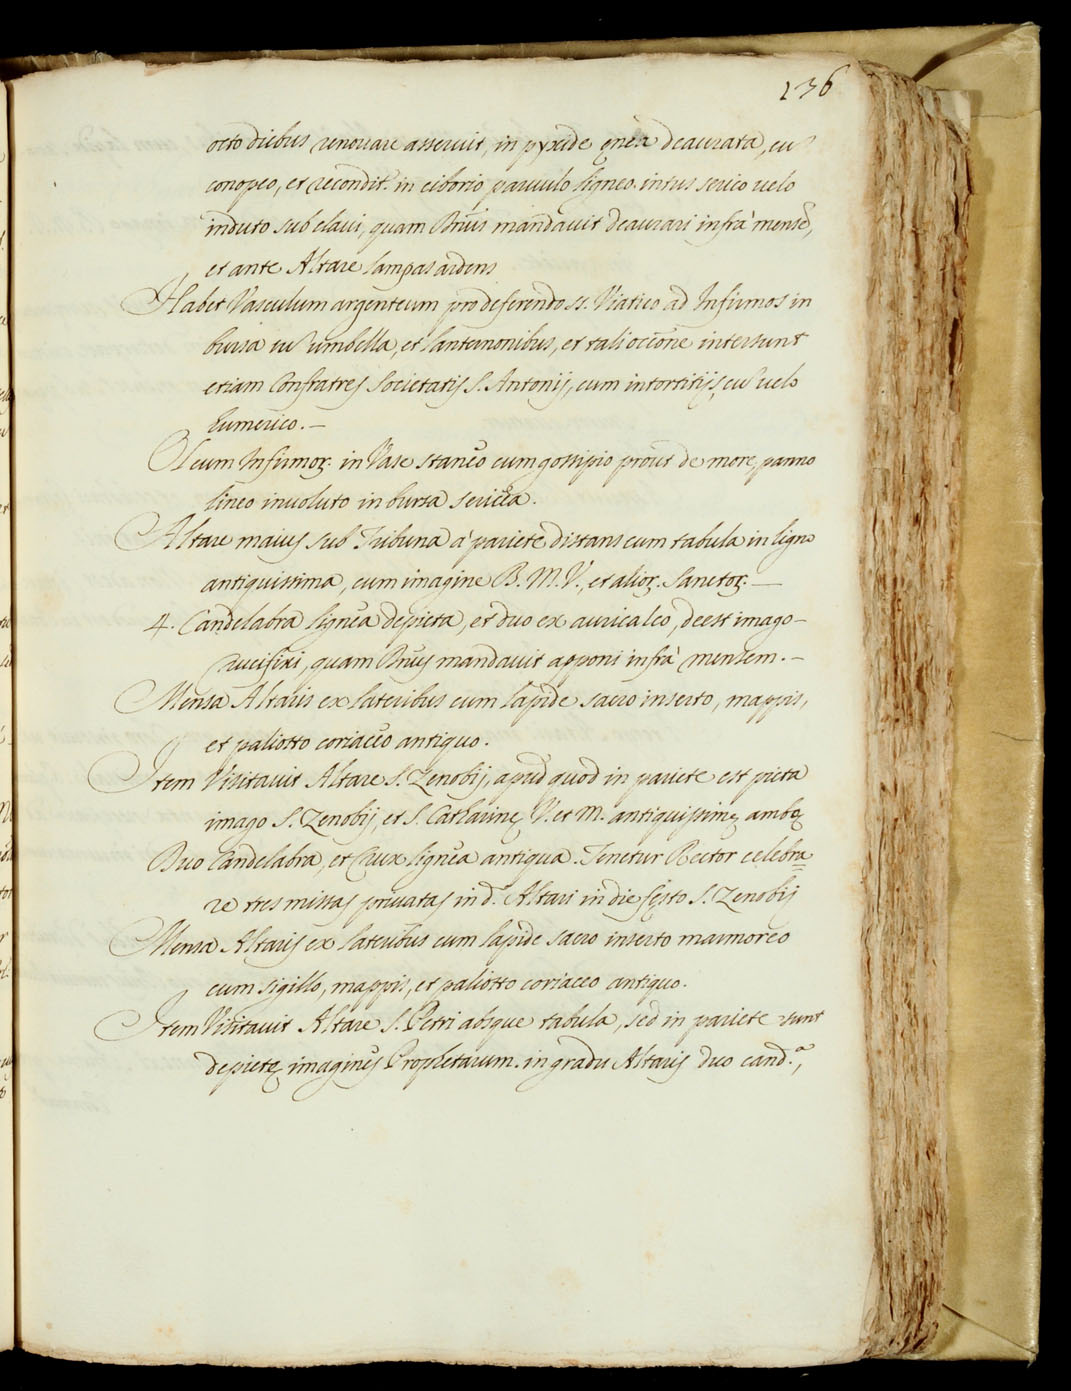 136
octo diebus renouare asseruit, in pyxide ęnea deaurata, cu
conopeo, et recondit.r in ciborio paruulo ligneo intus serico uelo
induto sub claui, quam Bñus mandauit deaurari infrà mensẽ,
et ante Altare lampas ardens
Habet Vasculum argenteum pro deferendo SS. Viatico ad Infirmos in
bursa cu umbella, et lanternonibus, et tali occõne intersunt
etiam Confratres Societatis S. Antonij, cum intortitijs, cu uelo
humerico. –
Oleum Infirmor. in Vase stanẽo cum gossipio prout de more, panno
lineo inuoluto in bursa sericea.
Altare maius sub Tribuna à pariete distans cum tabula in ligno
antiquissima, cum imagine B. M. V., et alior. Sanctor. –
4. Candelabra lignea depicta, et duo ex auricalco, deest imago
Crucifixi, quam Bñus mandauit apponi infrà mensem. –
Mensa Altaris ex lateribus cum lapide sacro inserto, mappis,
et paliotto coriaceo antiquo.
Item Visitauit Altare S. Zenobij, apud quod in pariete est picta
imago S. Zenobij, et S. Catharinę V. et M. antiquissimę ambę
Duo Candelabra, et Crux lignea antiqua. Tenetur Rector celebra=
re tres missas priuatas in d.o Altari in die festo S. Zenobij
Mensa Altaris ex lateribus cum lapide sacro inserto marmoreo
cum sigillo, mappis, et paliotto coriaceo antiquo.
Item Visitauit Altare S. Petri absque tabula, sed in pariete sunt
depictę imagines Prophetarum. in gradu Altaris duo cand.a,